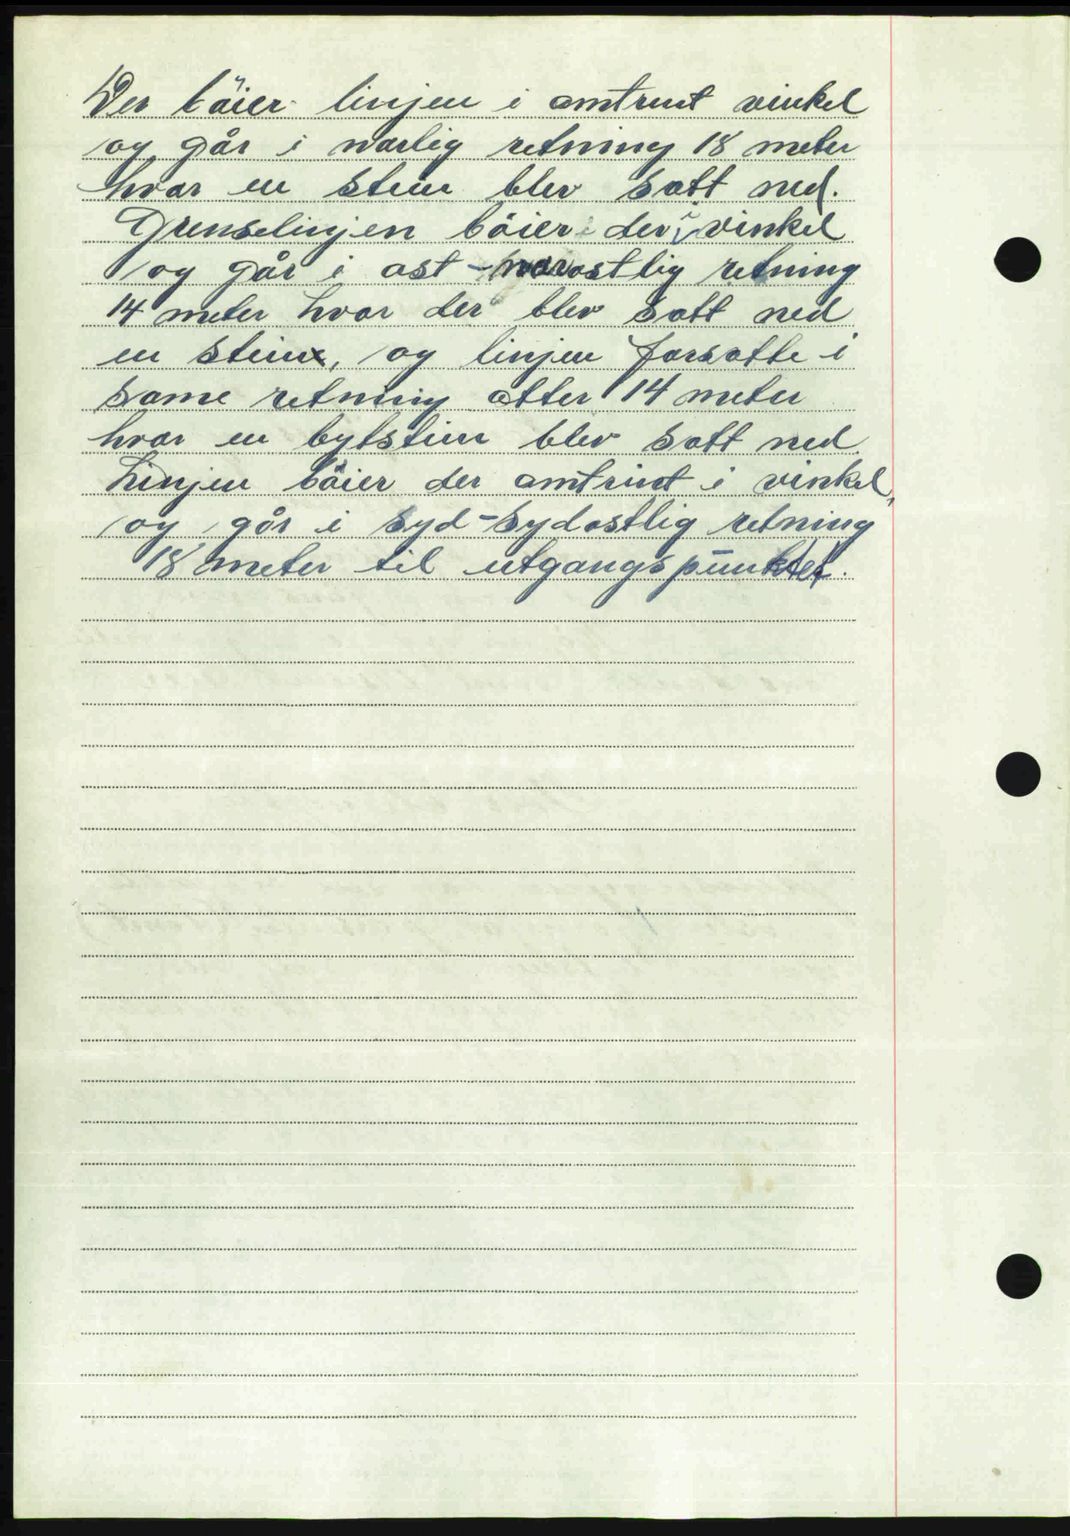 Der böier linjen i omtrent vinkel
og går i norlig retning 18 meter
hvor en stein blev satt ned.
Grenselinjen böier der i vinkel
og går i ost-norostlig retning
14 meter hvor der blev satt ned
en stein, og linjen forsatte i
same retning atter 14 meter
hvor en bytstein blev satt ned
Linjen böier der omtrint i vinkel,
og går i syd-sydostlig retning
18 meter til utgangspunktet.